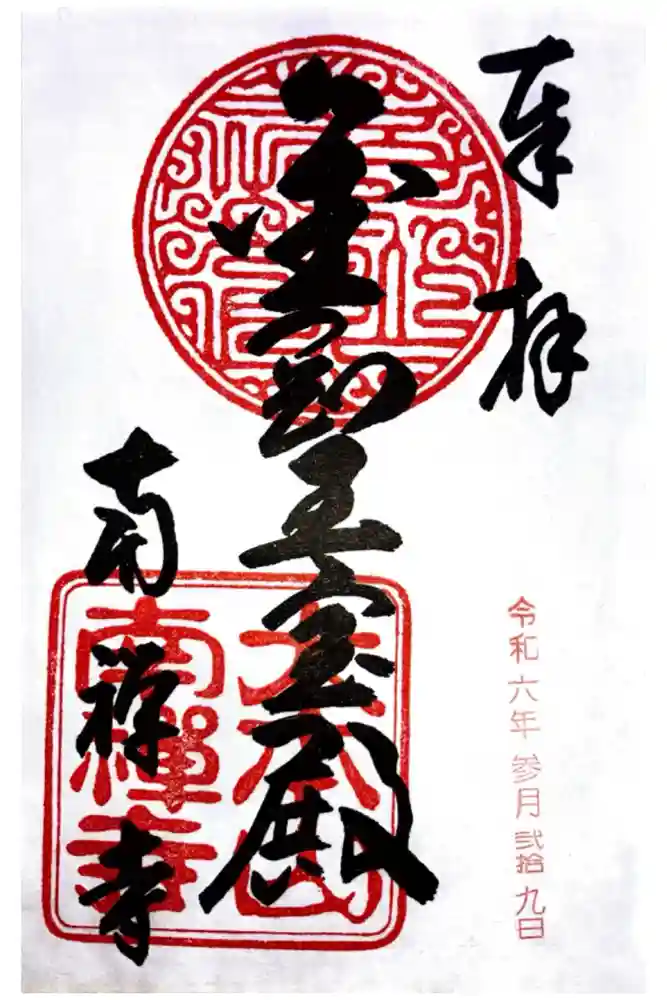 奉拝
令和六年参月弐拾九日
金剛王宝殿
南禅寺
大本山
南禪寺